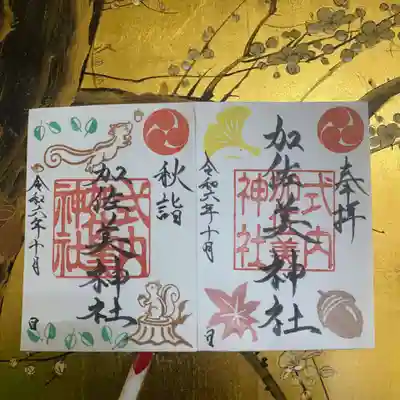 奉拝
加佐美神社
式内
神社
令和六年十月
日
秋詣
加佐美神社
式内
神社
令和六年十月
日